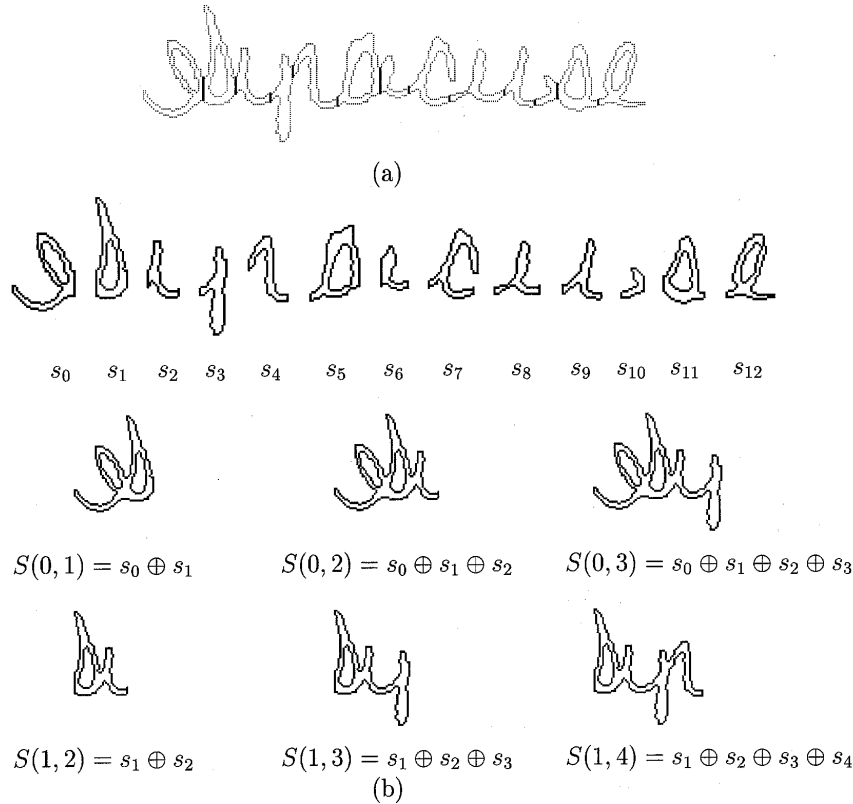 Syracuse
(a)
s₀ s₁ s₂ s₃ s₄ s₅ s₆ s₇ s₈ s₉ s₁₀ s₁₁ s₁₂
S(0, 1) = s₀ ⊕ s₁ S(0, 2) = s₀ ⊕ s₁ ⊕ s₂ S(0, 3) = s₀ ⊕ s₁ ⊕ s₂ ⊕ s₃
S(1, 2) = s₁ ⊕ s₂ S(1, 3) = s₁ ⊕ s₂ ⊕ s₃ S(1, 4) = s₁ ⊕ s₂ ⊕ s₃ ⊕ s₄
(b)